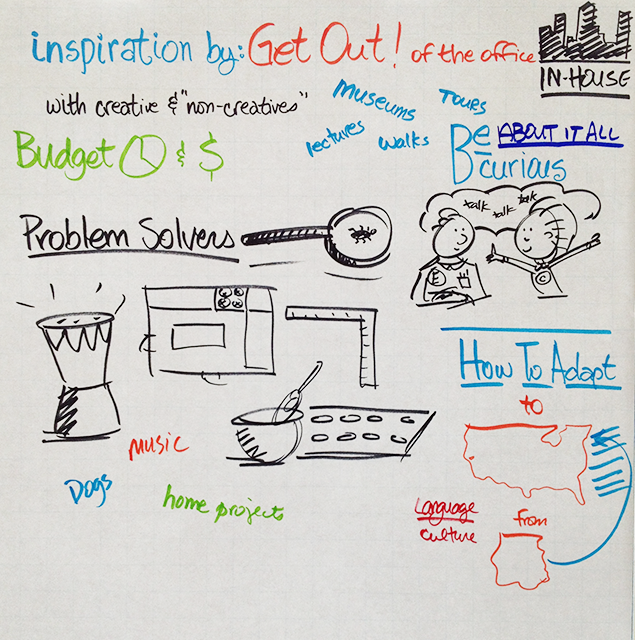 inspiration by: Get Out! of the office
IN-HOUSE
with creative & "non-creatives"
museums
Tours
lectures
walks
Budget & $
Be curious
ABOUT IT ALL
talk
talk talk
Problem Solvers
How To Adapt
to
music
Dogs
home projects
Language
culture
from